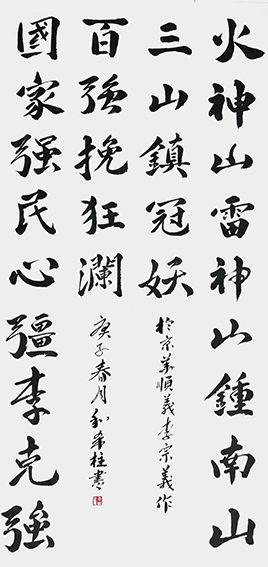 火神山雷神山鍾南山
三山鎮冠妖
於京華順義李宗義作
百強挽狂瀾
庚子春月柱書
國家强民心彊李克強